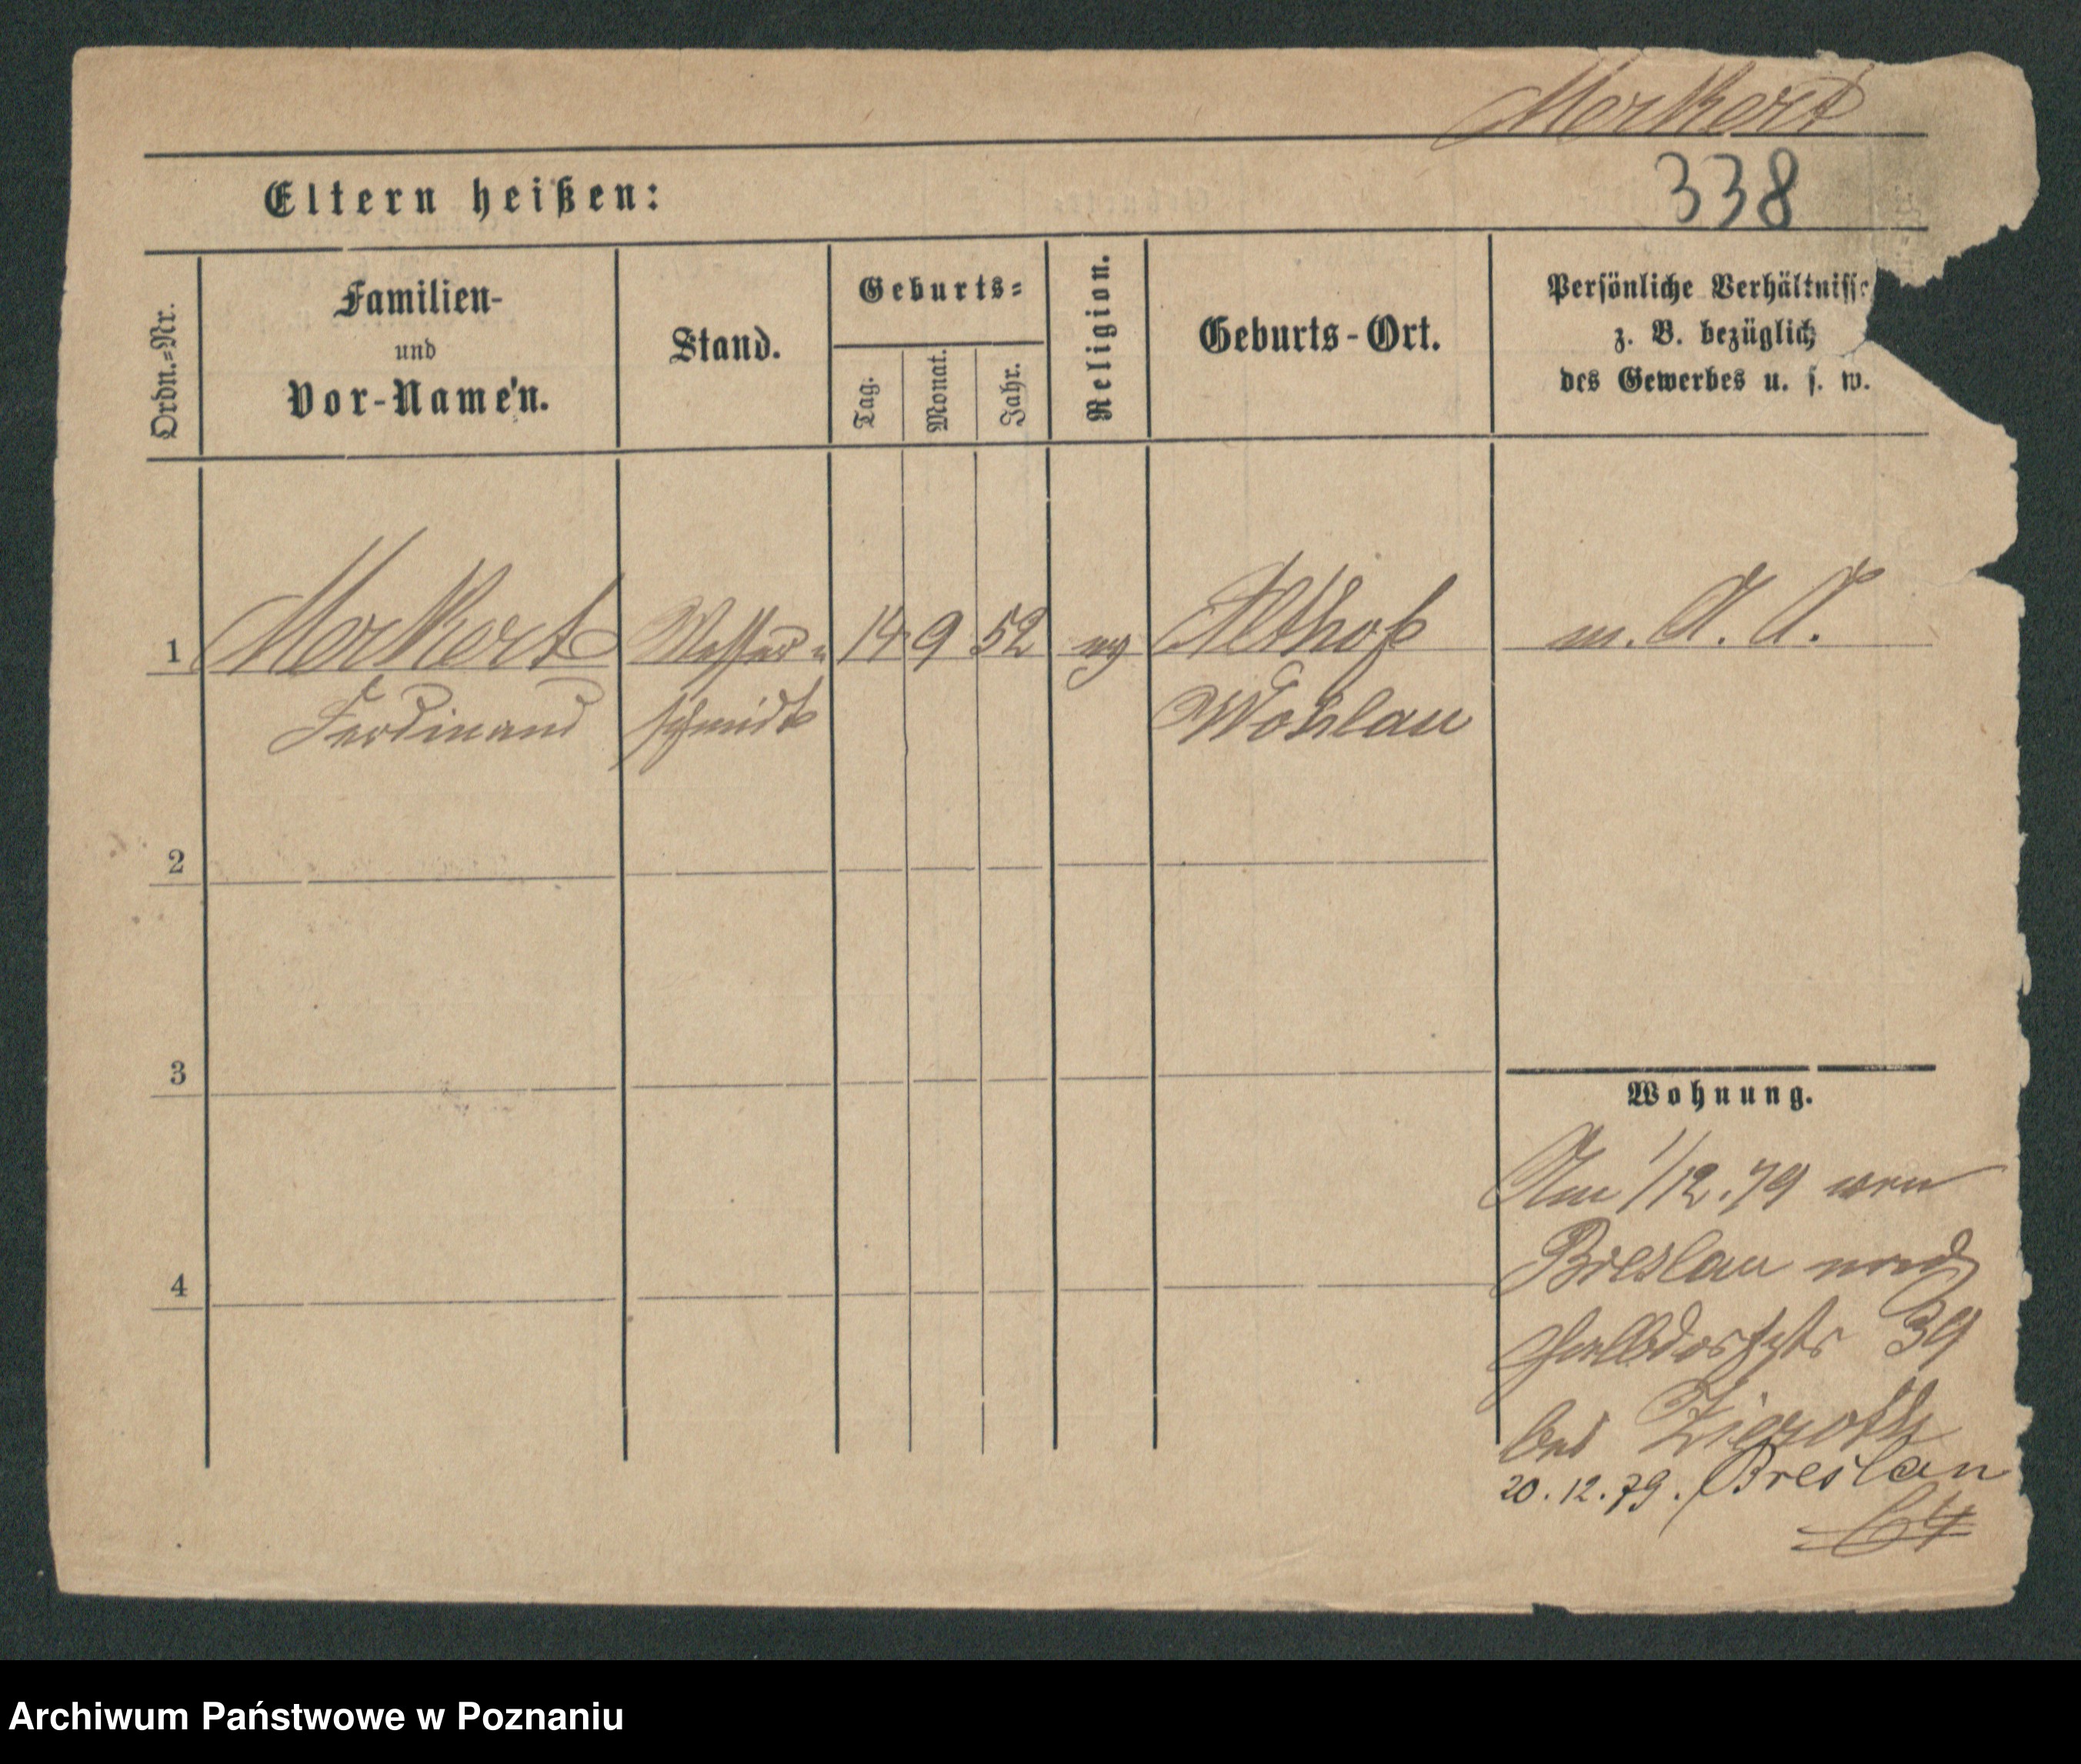 Merkert
338
Eltern heißen:
Ordn.=Nr.
Familien-
und
Vor-Namen.
Stand.
Geburts=
Tag.
Monat.
Jahr.
Religion.
Geburts-Ort.
Persönliche Verhältnisse
z. B. bezüglich
des Gewerbes u. s. w.
1 Merkert Messer= 14 9 52 Althof m. A. A.
Ferdinand schmidt Wohlau
2
3
4
Wohnung.
Am 1/12.79 von
Breslau nach
39
bei Zigroth
20.12.79. Breslau
Archiwum Państwowe w Poznaniu